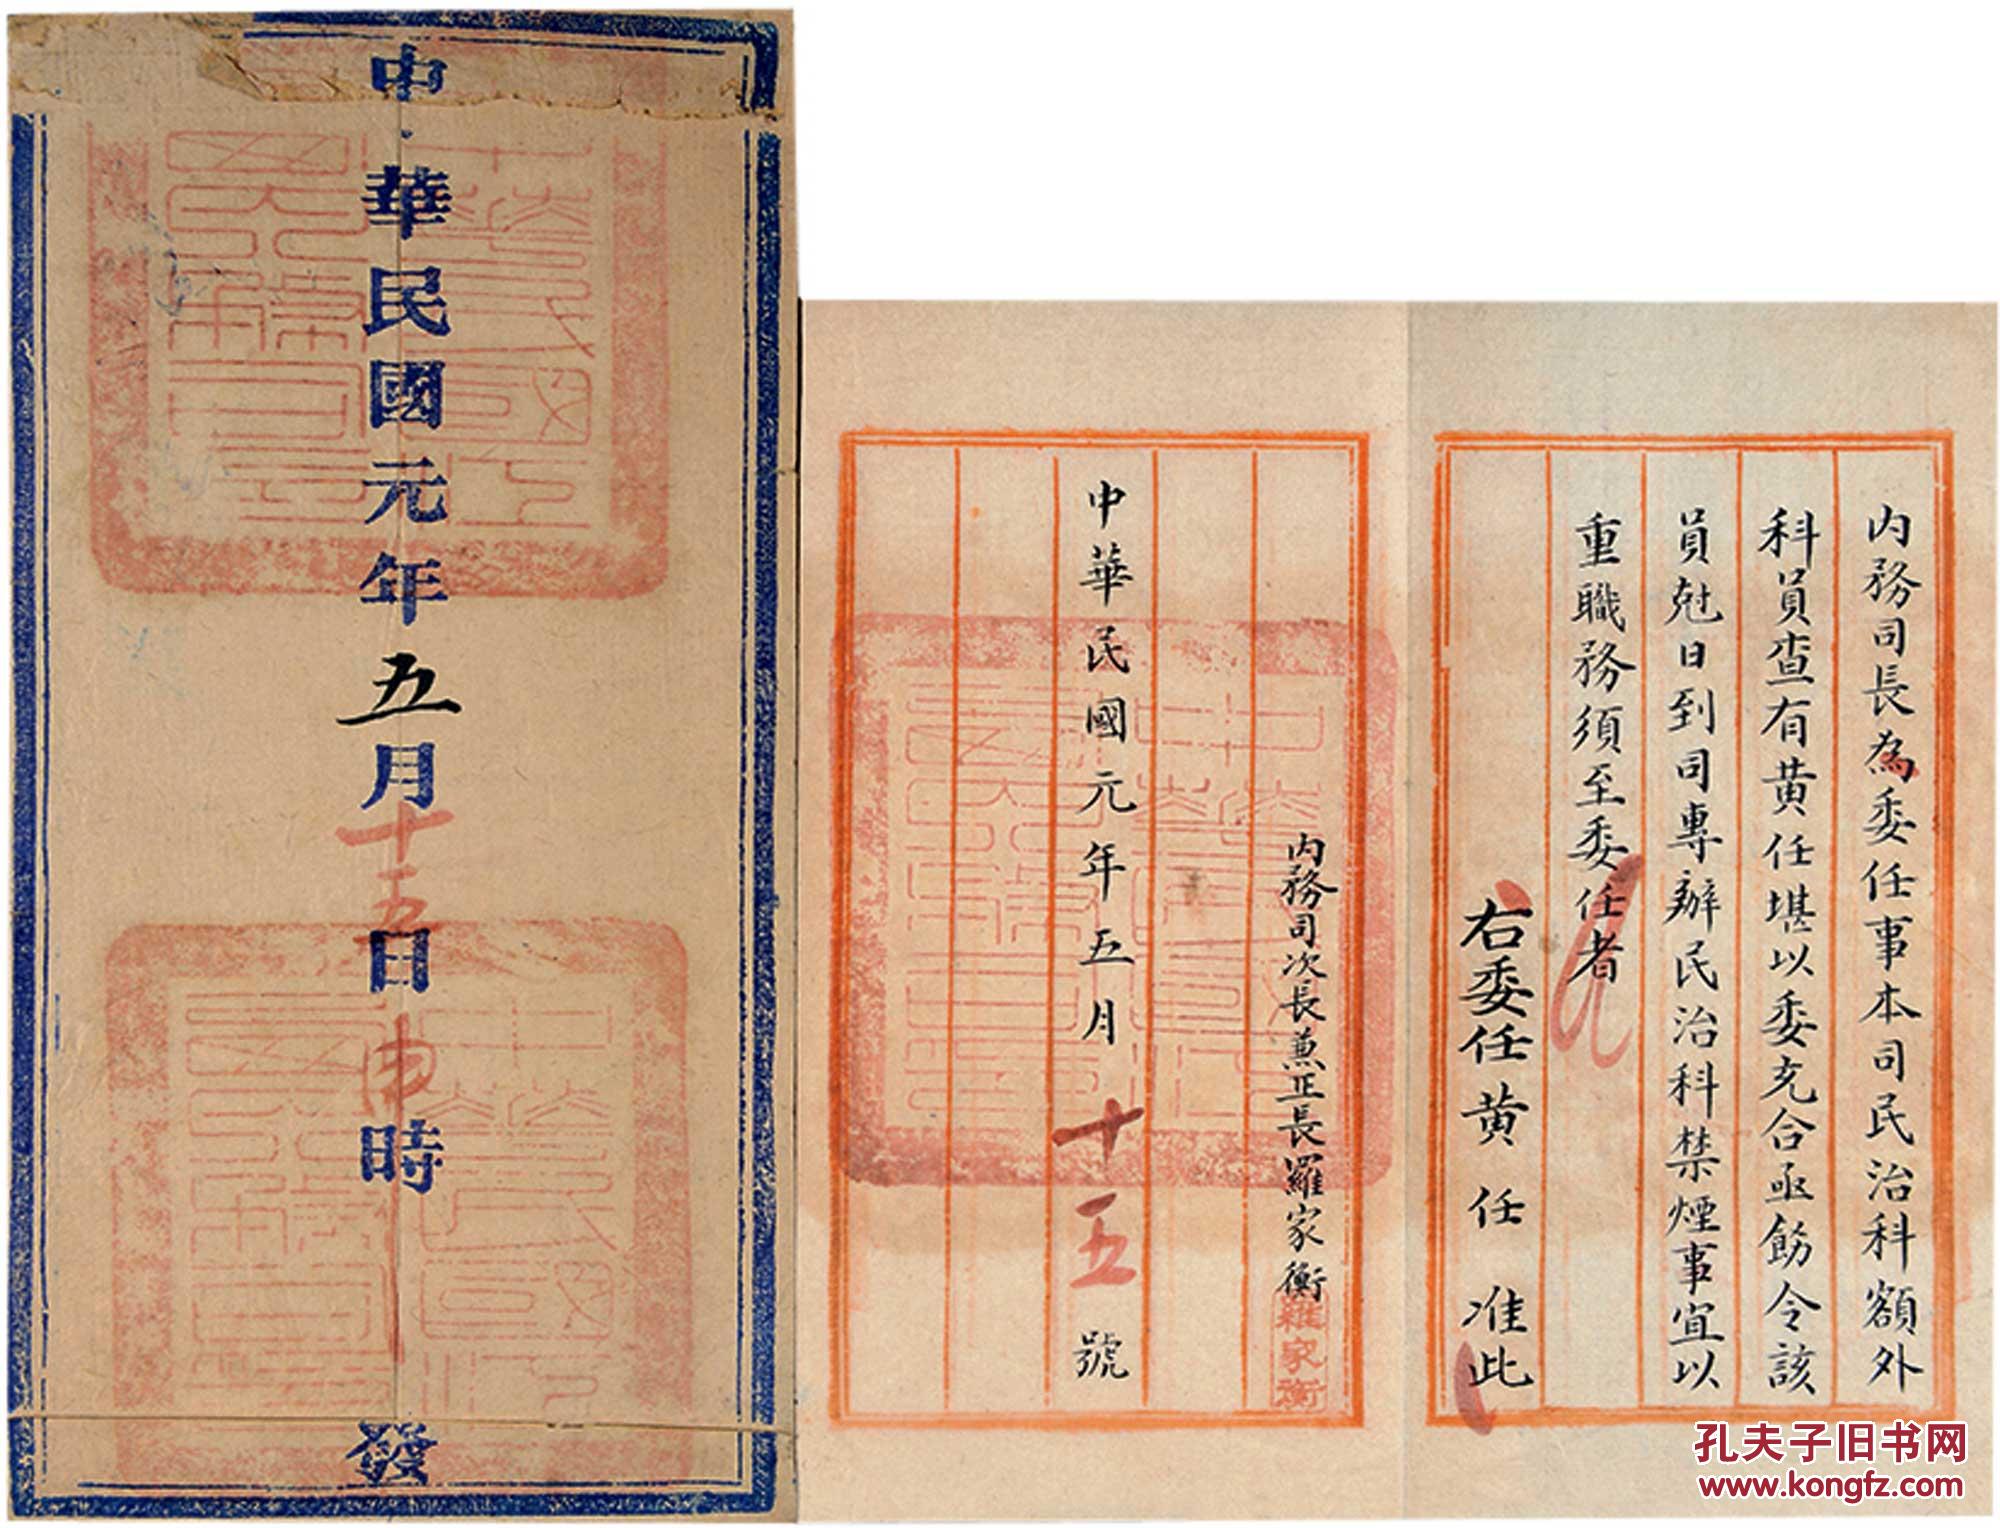 内務司長為委任事本司民治科額外
科員查有黄任堪以委充合亟飭令該
員尅日到司專辦民治科禁煙事宜以
重職務須至委任者
右委任黄任准此
内務司次長兼正長羅家衡
羅家衡
中華民國元年五月十五號
中華民國元年五月十五日申時發
孔夫子旧书网
www.kongfz.com